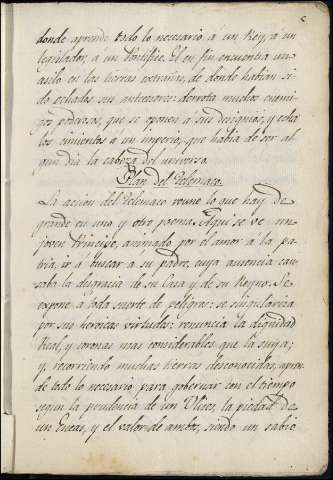 donde aprende todo lo necesario á un Rey, á un
legislador, á un Pontifice. El en fin encuentra un
asilo en las tierras extrañas, de donde habian si-
do echados sus antecesores: derrota muchos enemi-
gos poderosos, que se oponen a sus designios, y echa
los cimientos á un imperio, que habia de ser al-
gun dia la cabeza del universo.
Plan del Telemaco.
La acción del Telemaco reune lo que hay de
grande en uno y otro poema. Aqui se ve un
joven Principe, animado por el amor a la pa-
tria, ir á buscar a su padre, cuya ausencia cau-
saba la desgracia de su Casa y de su Reyno. Se
expone à toda suerte de peligros: se singulariza
por sus heroicas virtudes: renuncia la dignidad
Real, y coronas mas considerables que la suya;
y, recorriendo muchas tierras desconocidas, apren-
de todo lo necesario para gobernar con el tiempo
segun la prudencia de un Ulises, la piedad de
un Eneas, y el valor de ambos, siendo un sabio